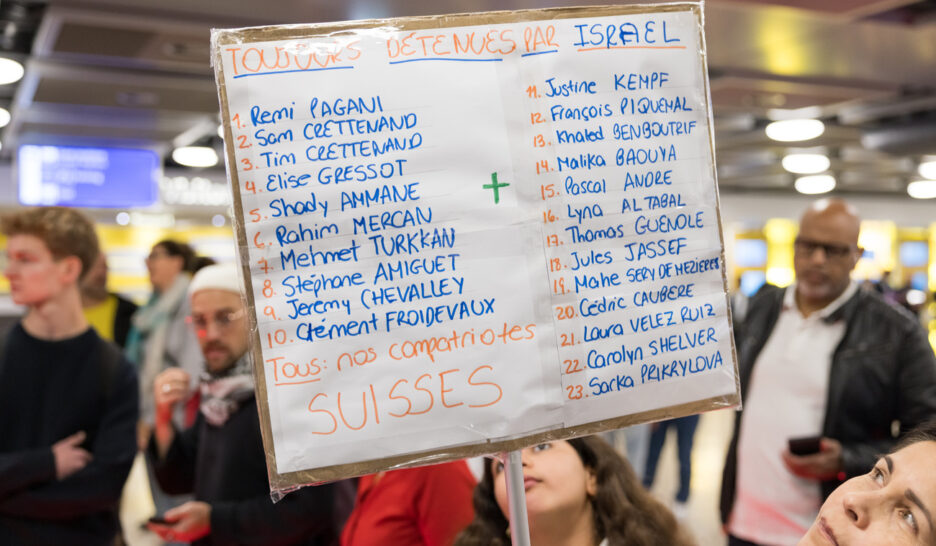 TOUJOURS DÉTENUES PAR ISRAEL
1. Remi PAGANI
2. Sam CRETTENAND
3. Tim CRETTENAND
4. Elise GRESSOT
5. Shady AMMANE
6. Rahim MERCAN
7. Mehmet TURKKAN
8. Stéphane AMIGUET
9. Jeremy CHEVALLEY
10. Clément FROIDEVAUX
Tous: nos compatriotes
SUISSES
+
11. Justine KEMPF
12. François PIQUEMAL
13. Khaled BENBOUTRIF
14. Malika BAOUYA
15. Pascal ANDRE
16. Lyna ALTABAL
17. Thomas GUENOLE
18. Jules JASSEF
19. Mahe SERY DE MEZIERES
20. Cédric CAUBERE
21. Laura VELEZ RUIZ
22. Carolyn SHELVER
23. Sarka PRIKRYLOVA